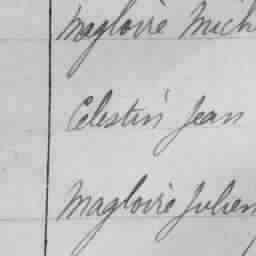 Magloire Mich
Celestin Jean
Magloire Julien